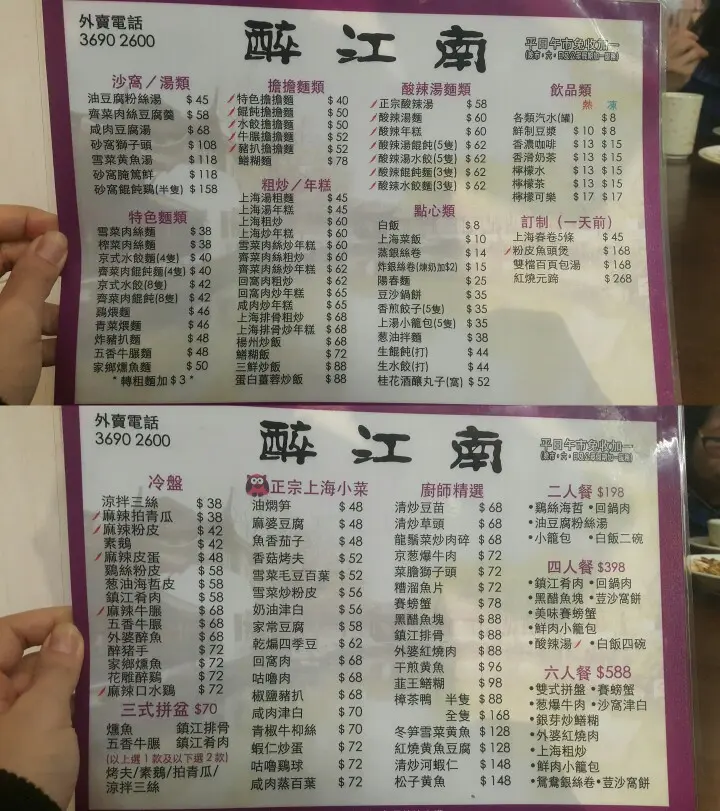 外賣電話
3690 2600
醉江南
平日午市免收加一
沙窩／湯類
油豆腐粉絲湯 $45
齊菜肉絲豆腐羹 $58
咸肉豆腐湯 $68
砂窩獅子頭 $108
雪菜黄魚湯 $118
砂窩腌篤鮮 $118
砂窩餛飩鷄(半隻) $158
特色麵類
雪菜肉絲麵 $38
榨菜肉絲麵 $38
京式水餃麵(4隻) $40
齊菜肉餛飩麵(4隻) $40
京式水餃(8隻) $42
齊菜肉餛飩(8隻) $42
鷄煨麵 $46
青菜煨麵 $46
炸豬扒麵 $48
五香牛𦟌麵 $48
家鄉燻魚麵 $50
*轉粗麵加$3*
擔擔麵類
特色擔擔麵 $40
餛飩擔擔麵 $50
水餃擔擔麵 $52
牛𦟌擔擔麵 $52
豬扒擔擔麵 $52
鱔糊麵 $78
粗炒／年糕
上海湯粗麵 $45
上海湯年糕 $45
上海粗炒 $60
上海炒年糕 $60
雪菜肉絲炒年糕 $60
齊菜肉絲粗炒 $60
齊菜肉絲炒年糕 $62
回窩肉粗炒 $62
回窩肉炒年糕 $65
咸肉炒年糕 $65
上海排骨粗炒 $68
上海排骨炒年糕 $68
楊州炒飯 $68
鱔糊飯 $72
三鮮炒飯 $88
蛋白薑蓉炒飯 $88
酸辣湯麵類
正宗酸辣湯 $58
酸辣湯麵 $60
酸辣年糕 $60
酸辣湯餛飩(5隻) $62
酸辣湯水餃(5隻) $62
酸辣餛飩麵(3隻) $62
酸辣水餃麵(3隻) $62
點心類
白飯 $8
上海菜飯 $10
蒸銀絲卷 $14
炸銀絲卷(煉奶加$2) $15
陽春麵 $25
豆沙鍋餅 $35
香煎餃子(5隻) $35
上湯小籠包(5隻) $35
葱油拌麵 $38
生餛飩(打) $44
生水餃(打) $44
桂花酒釀丸子(窩) $52
飲品類
熱 凍
各類汽水(罐) $8
鮮制豆漿 $10 $8
香濃咖啡 $13 $15
香滑奶茶 $13 $15
檸檬水 $13 $15
檸檬茶 $13 $15
檸檬可樂 $17 $17
訂制（一天前）
上海春卷5條 $45
粉皮魚頭煲 $168
雙檔百頁包湯 $168
紅燒元蹄 $268
外賣電話
3690 2600
醉江南
平日午市免收加一
冷盤
涼拌三絲 $38
麻辣拍青瓜 $38
麻辣粉皮 $42
素鵝 $42
麻辣皮蛋 $48
鷄絲粉皮 $58
葱油海哲皮 $58
鎮江肴肉 $58
麻辣牛𦟌 $68
五香牛𦟌 $68
外婆醉魚 $68
醉豬手 $72
家鄉燻魚 $72
花雕醉鷄 $72
麻辣口水鷄 $72
三式拼盆 $70
燻魚 鎮江排骨
五香牛𦟌 鎮江肴肉
(以上選1款及以下選2款)
烤夫/素鵝/拍青瓜/
涼拌三絲
正宗上海小菜
油燜笋 $48
麻婆豆腐 $48
魚香茄子 $48
香菇烤夫 $52
雪菜毛豆百葉 $52
雪菜炒粉皮 $56
奶油津白 $56
家常豆腐 $58
乾煸四季豆 $62
回窩肉 $68
咕嚕肉 $68
椒鹽豬扒 $68
咸肉津白 $70
青椒牛柳絲 $70
蝦仁炒蛋 $72
咕嚕鷄球 $72
咸肉蒸百葉 $72
廚師精選
清炒豆苗 $68
清炒草頭 $68
龍鬚菜炒肉碎 $68
京葱爆牛肉 $72
菜膽獅子頭 $72
糟溜魚片 $72
賽螃蟹 $78
黑醋魚塊 $88
鎮江排骨 $88
外婆紅燒肉 $88
干煎黄魚 $96
韮王鱔糊 $98
樟茶鴨 半隻 $88
全隻 $168
冬笋雪菜黄魚 $128
紅燒黄魚豆腐 $128
清炒河蝦仁 $148
松子黄魚 $148
二人餐 $198
•鷄絲海哲 •回鍋肉
•油豆腐粉絲湯
•小籠包 •白飯二碗
四人餐 $398
•鎮江肴肉 •回鍋肉
•黑醋魚塊 •荳沙窩餅
•美味賽螃蟹
•鮮肉小籠包
•酸辣湯 •白飯四碗
六人餐 $588
•雙式拼盤 •賽螃蟹
•葱爆牛肉 •沙窩津白
•銀芽炒鱔糊
•外婆紅燒肉
•上海粗炒
•鮮肉小籠包
•鴛鴦銀絲卷 •荳沙窩餅